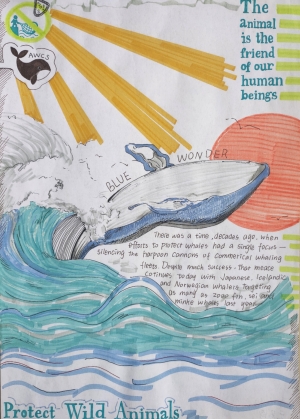 The
animal
is the
friend
of our
human
beings
AWCS
BLUE WONDER
There was a time, decades ago, when
efforts to protect whales had a single focus —
silencing the harpoon cannons of commercial whaling
fleets. Despite much success that menace
continues today with Japanese, Icelandic
and Norwegian whalers targeting
as many as 2040 fin, sei and
minke whales last
Protect Wild Animals